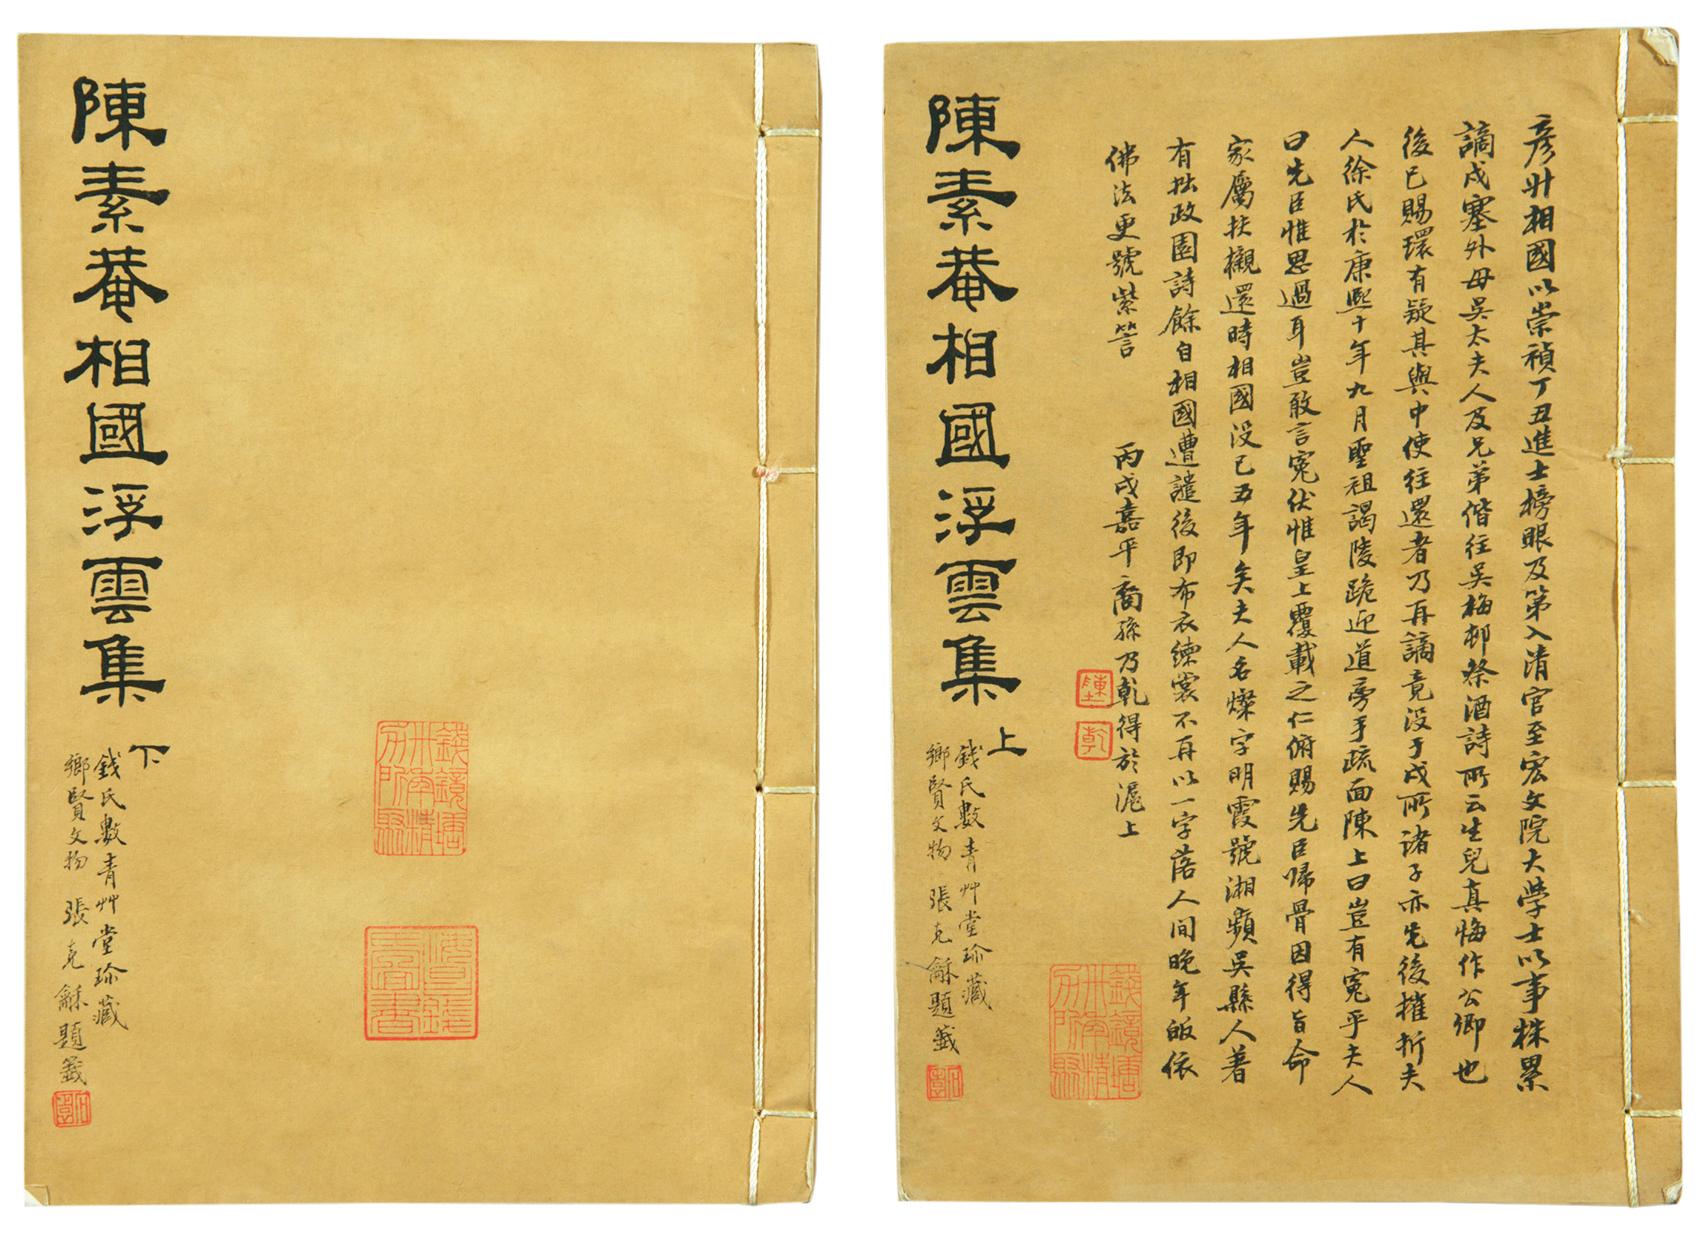 彦升相國以崇禎丁丑進士榜眼及第入清官至宏文院大學士以事株累
謫戍塞外母吳太夫人及兄弟偕往吳梅邨祭酒詩所云生兒真悔作公卿也
後已賜環有疑其與中使往還者乃再謫竟没于戍所諸子亦先後摧折夫
人徐氏於康熙十年九月聖祖謁陵跪迎道旁手疏面陳上曰豈有寃乎夫人
曰先臣惟思過耳豈敢言寃伏惟皇上覆載之仁俯賜先臣歸骨因得旨命
家屬扶櫬還時相國没已五年矣夫人名燦字明霞號湘蘋吳縣人著
有拙政園詩餘自相國遭譴後即布衣練裳不再以一字落人間晚年皈依
佛法更號紫䇾 丙戌嘉平裔孫乃乾得於滬上
陳
乾
陳素菴相國浮雲集 上
錢氏數青艸堂珍藏
鄉賢文物 張克龢題籤
錢鏡塘
陳素菴相國浮雲集 下
錢氏數青艸堂珍藏
鄉賢文物 張克龢題籤
錢鏡塘